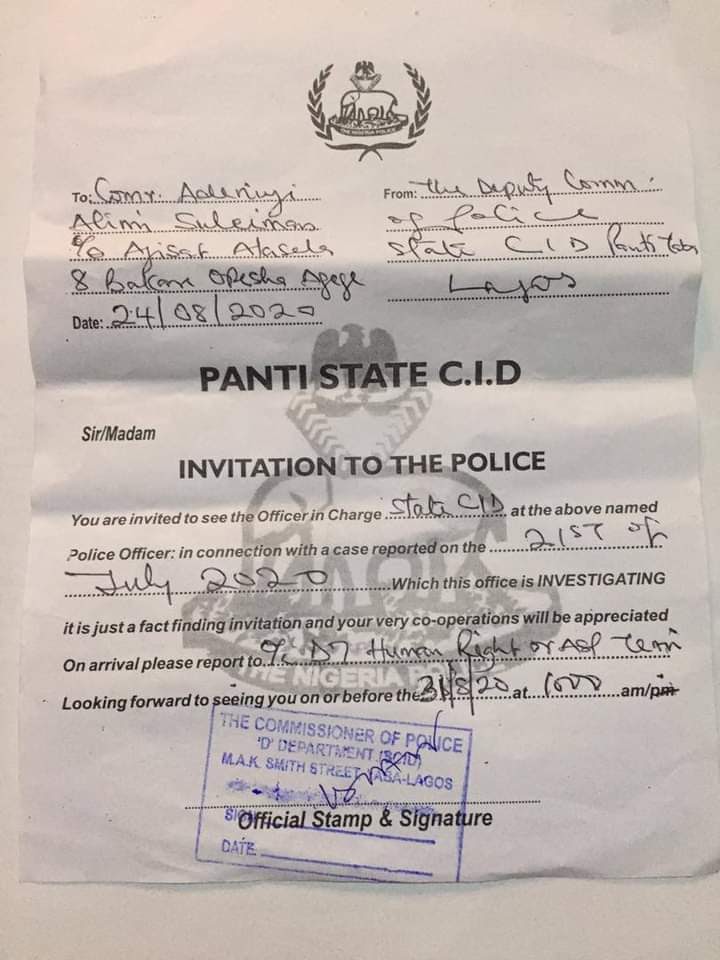 THE NIGERIA POLICE
To: Comr. Adeniyi
Alimi Suleiman
c/o Ajisat Atasela
8 Bakare Opesha Agege
Date: 24/08/2020
From: The Deputy Comm.
of police
State CID Panti Yaba
Lagos
PANTI STATE C.I.D
Sir/Madam
INVITATION TO THE POLICE
You are invited to see the Officer in Charge State CID at the above named
Police Officer: in connection with a case reported on the 21ST of
July 2020 Which this office is INVESTIGATING
it is just a fact finding invitation and your very co-operations will be appreciated
On arrival please report to O/C D7 Human Right or ASP
THE NIGERIA
Looking forward to seeing you on or before the 31/8/20 at 1000 am/pm
THE COMMISSIONER OF POLICE
'D' DEPARTMENT (SCID)
M.A.K. SMITH STREET, YABA-LAGOS
SIGN
Official Stamp & Signature
DATE